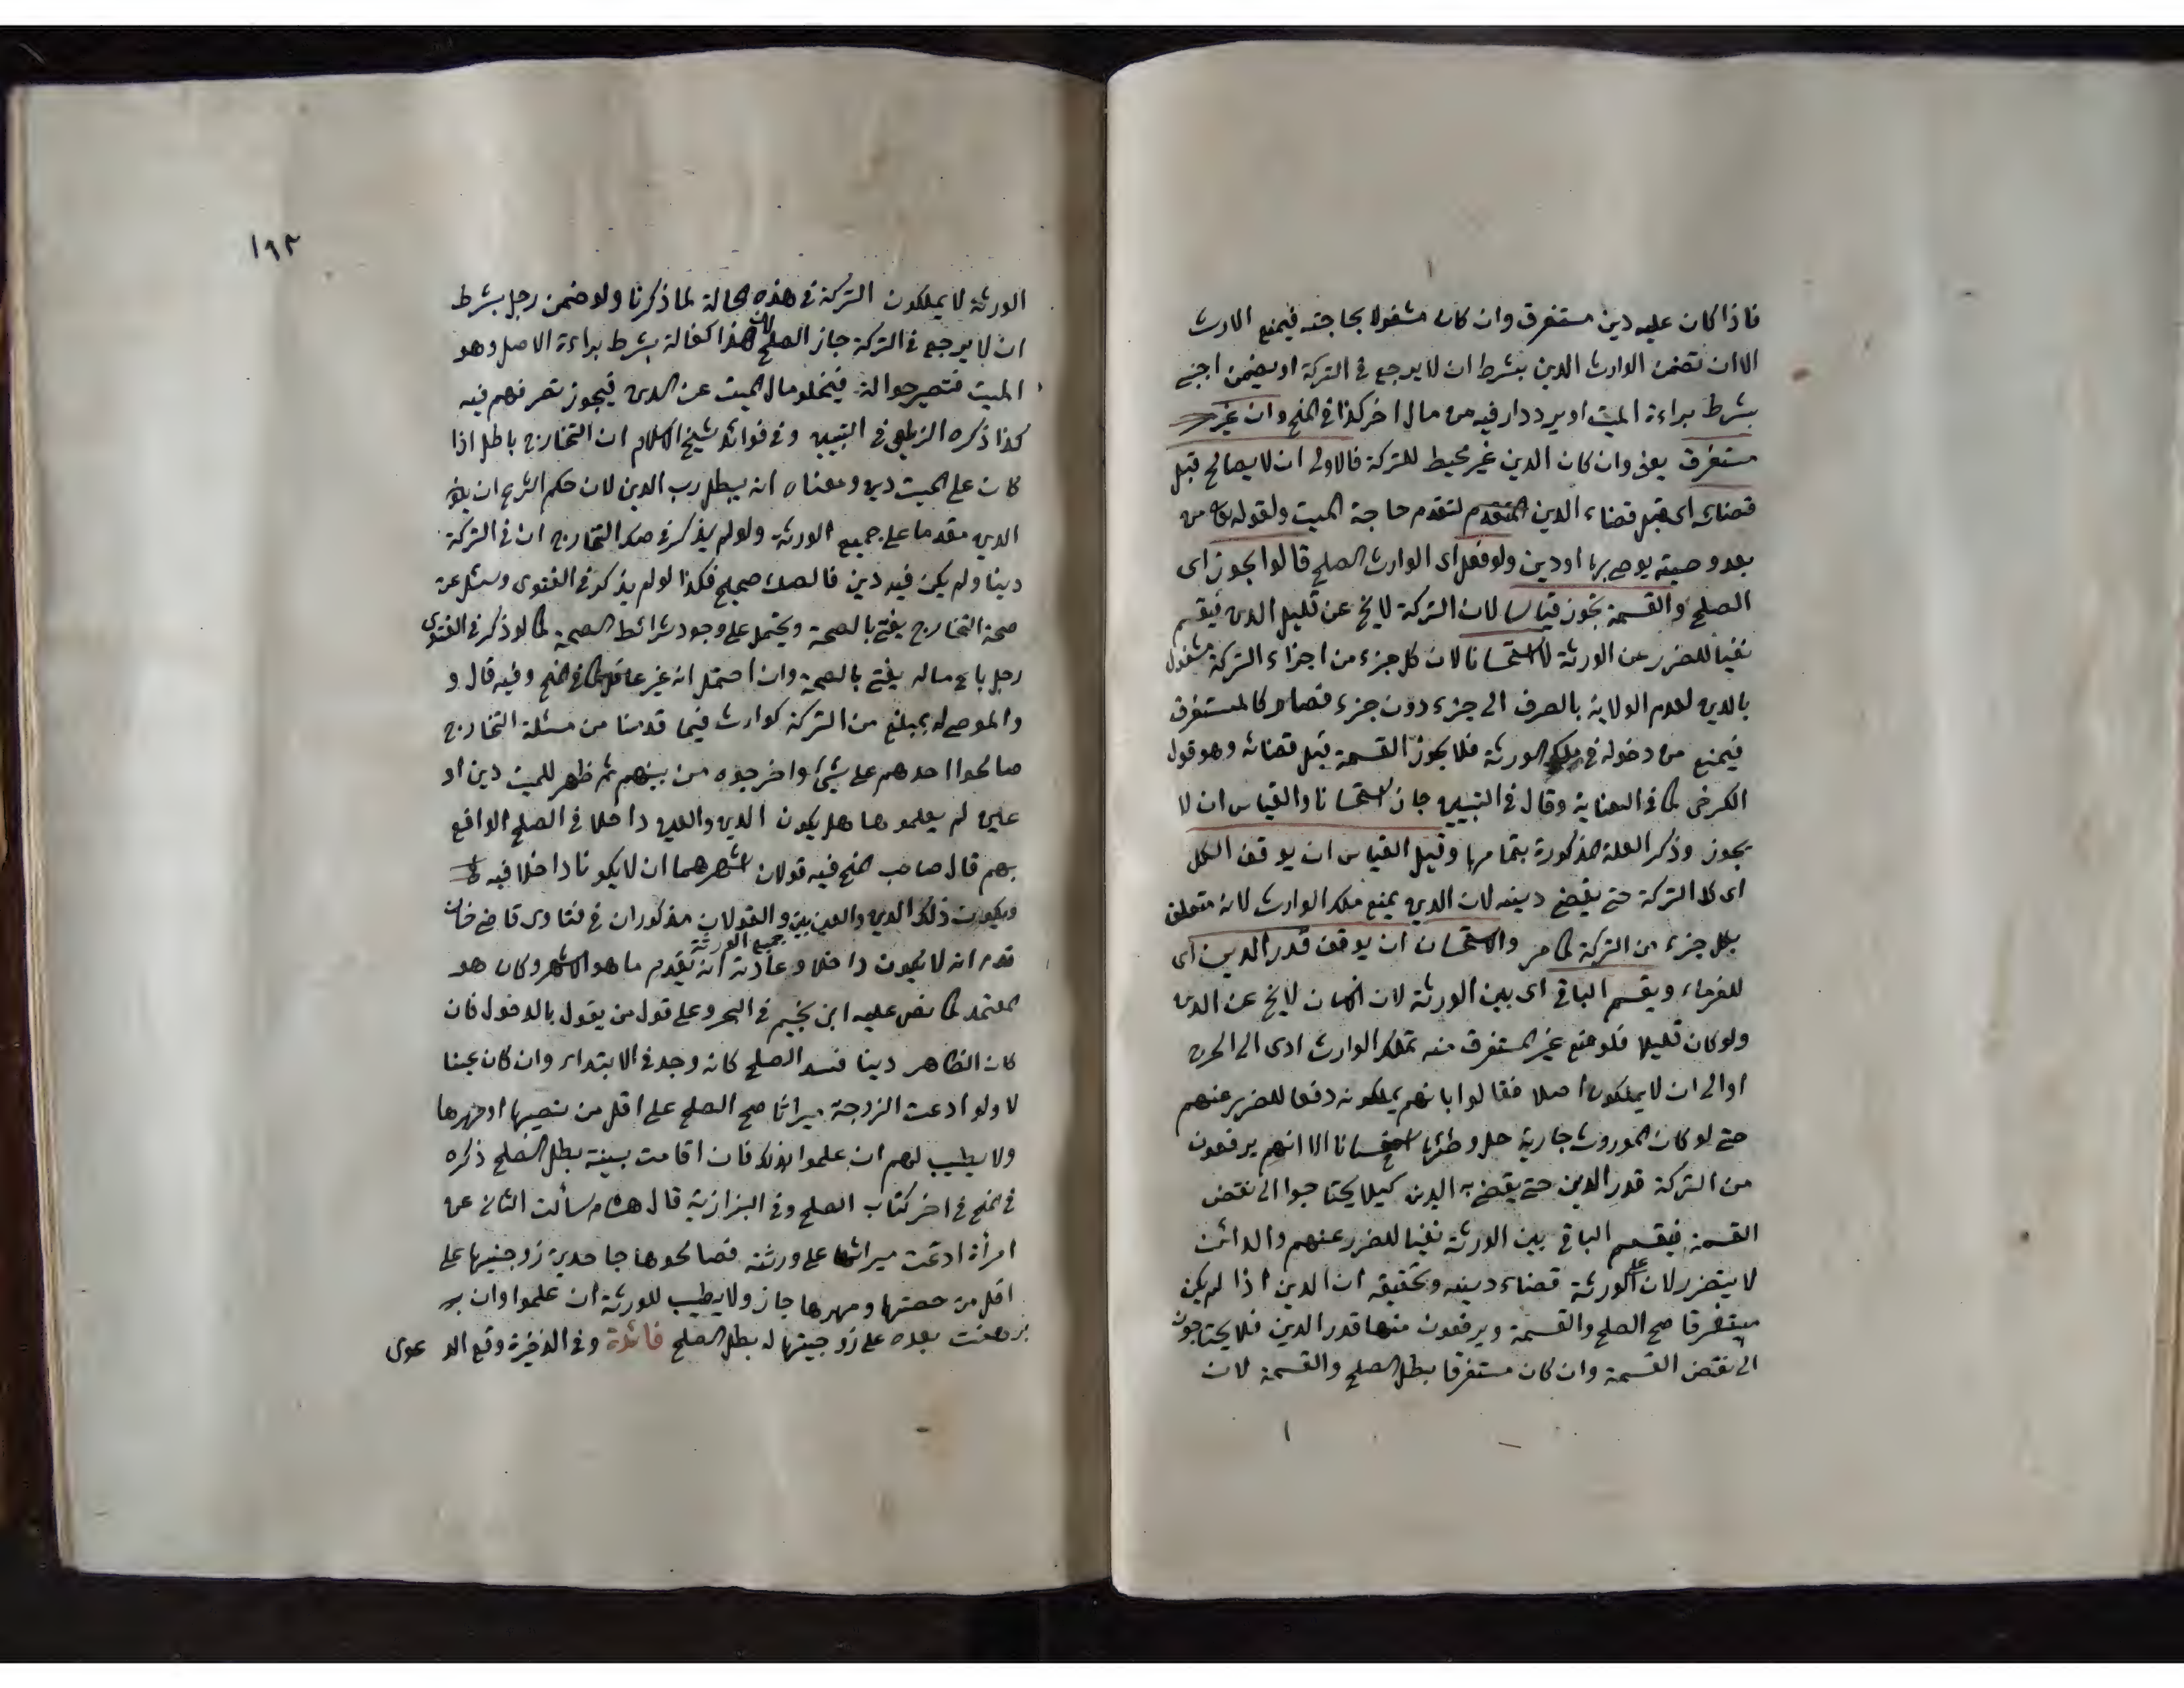 فاذا كان عليه دين مستغرق وان كان مشغولا بحاجته فيمنع الارث
الا ان تضمن الوارث الدين بشرط ان لا يرجع في التركة او يضمن اجنبي
بشرط براءة الميت او يرد دار فيه من مال اخر كذا في المنح وان غير
مستغرق يعني وان كان الدين غير محيط للتركة فالاولى ان لا يصالح قبل
قضائه اى قبل قضاء الدين المتقدم لتقدم حاجة الميت ولقوله تعالى من
بعد وصية يوصى بها او دين ولو فعل اى الوارث الصلح قالوا يجوز اى
الصلح والقسمة تجوز قياسا لان التركة لا يخ عن قليل الدين فيقسم
نفيا للضرر عن الورثة لا استحسانا لان كل جزء من اجزاء التركة مشغول
بالدين لعدم الولاية بالصرف الى جزء دون جزء فصار كالمستغرق
فيمنع من دخوله في ملك الورثة فلا يجوز القسمة قبل قضائه وهو قول
الكرخى كما في العناية وقال في التبيين جاز استحسانا والقياس ان لا
يجوز وذكر العلة المذكورة بتمامها وقيل القياس ان يوقف الكل
اى كل التركة حتى يقضى دينه لان الدين يمنع ملك الوارث لانه متعلق
بكل جزء من التركة كما مر والاستحسان ان يوقف قدر الدين اى
للغرماء ويقسم الباقى اى بين الورثة لان الانسان لا يخ عن الدين
ولو كان قليلا فلو منع غير المستغرق منه تملك الوارث ادى الى الحرج
او الى ان لا يملكون اصلا فقالوا بانهم يملكونه دفعا للضرر عنهم
حتى لو كان الموروث جارية حل وطئها استحسانا الا انهم يرفعون
من التركة قدر الدين حتى يقضى به الدين كيلا يحتاجوا الى نقض
القسمة فيقسم الباقى بين الورثة نفيا للضرر عنهم والدائن
لا يتضرر لان على الورثة قضاء دينه وتحقيقه ان الدين اذا لم يكن
مستغرقا صح الصلح والقسمة ويرفعون منها قدر الدين فلا يحتاجون
الى نقض القسمة وان كان مستغرقا بطل الصلح والقسمة لان
١٩٢
الورثة لا يملكون التركة في هذه الحالة لما ذكرنا ولو ضمن رجل بشرط
ان لا يرجع في التركة جاز الصلح لان هذا كفالة بشرط براءة الاصل وهو
الميت فتصير حوالة فيخلو مال الميت عن الدين فيجوز تصرفهم فيه
كذا ذكره الزيلعى في التبيين وفي فوائد شيخ الاسلام ان التخارج باطل اذا
كان على الميت دين ومعناه ان يبطل رب الدين لان حكم الشرع ان يكون
الدين مقدما على جميع الورثة ولو لم يذكر في صك التخارج ان في التركة
دينا ولم يكن فيه دين فالصك صحيح فكذا لو لم يذكر في الفتوى وسئل عن
صحة التخارج يفتى بالصحة ويحتمل على وجود شرائط الصحة كما لو ذكر في الفتوى
رجل باع ماله يفتى بالصحة وان احتمل انه غير عاقل كما في المنح وفيه قال و
والموصى له بمبلغ من التركة كوارث فيما قدمنا من مسئلة التخارج
صالحوا احدهم على شيئ واخرجوه من بينهم ثم ظهر للميت دين او
عين لم يعلموها هل يكون الدين والعين داخلا في الصلح الواقع
بهم قال صاحب المنح فيه قولان اشهرهما ان لا يكونا داخلا فيه
ويكون ذلك الدين والعين بين جميع الورثة والقولان مذكوران في فتاوى قاضى خان
قدم انه لا يكون داخلا وعادته انه يقدم ما هو الاشهر وكان هو
المعتمد كما نص عليه ابن نجيم في البحر وعلى قول من يقول بالدخول فان
كان الظاهر دينا فسد الصلح كانه وجد في الابتداء وان كان عينا
لا ولو ادعت الزوجة ميراثا صح الصلح على اقل من نصيبها او مهرها
ولا يطيب لهم ان علموا بذلك فان اقامت بينة بطل الصلح ذكره
في المنح في اخر كتاب الصلح وفي البزازية قال هشام سألت الثانى عن
امرأة ادعت ميراثها على ورثته فصالحوها جاحدين زوجيتها على
اقل من حصتها ومهرها جاز ولا يطيب للورثة ان علموا وان
برهنت بعده على زوجيتها له بطل الصلح فائدة وفي الذخيرة وقع الدعوى